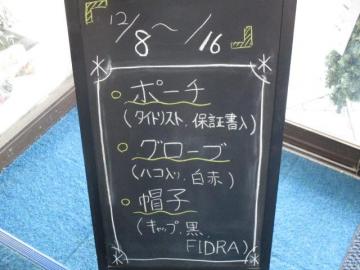 12/8～/16
ポーチ
(タイトリスト、保証書入)
グローブ
(ハコ入り、白赤)
帽子
(キャップ、黒、
FIDRA)